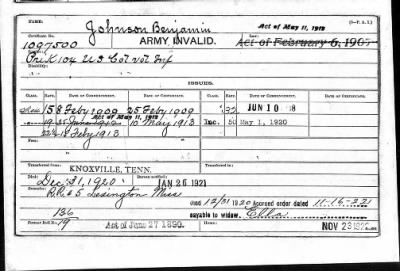 Johnson Benjamin
Act of May 11, 1912
(3-P. A. I.)
Certificate No.
ARMY INVALID.
Law:
1097500
Act of February 6, 1907
Pr. K 104 U S Col Vol Inf
Disability:
ISSUES.
CLASS. RATE. DATE OF COMMENCEMENT. DATE OF CERTIFICATE. CLASS. RATE. DATE OF COMMENCEMENT. DATE OF CERTIFICATE.
15 8 Feby 1909 25 Feby 1909 32 JUN 10 18
Act of May 11, 1912
19 10 May 1913 Inc. 50 May 1, 1920
Feby 1913
Transferred from
KNOXVILLE, TENN.
Transferred from
Died: Dec 31, 1920. Bureau notified: JAN 26 1921
R.R. #5 Lexington Miss
Died 12/31 1920 Accrued order dated 11-16-221
136
payable to widow. Ella
Former Roll No. 19
Act of June 27 1890.
NOV 23